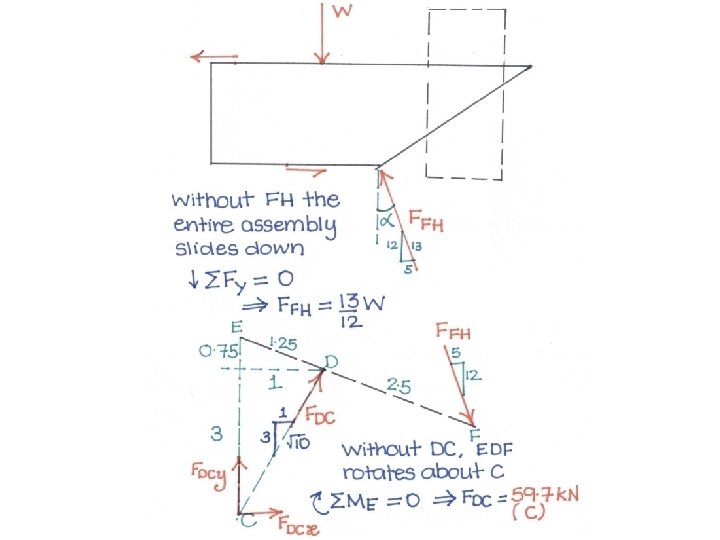 W
without FH the
entire assembly
slides down
α
F_FH
12 13
5
↓ΣFy = 0
⇒ F_FH = 13/12 W
E
0.75
1.25
D
1
2.5
F_FH
5
12
F
3
1
3
√10
F_DC
without DC, EDF
rotates about C
F_DCy
ΣM_E = 0 ⇒ F_DC = 59.7 kN
(C)
C
F_DCx